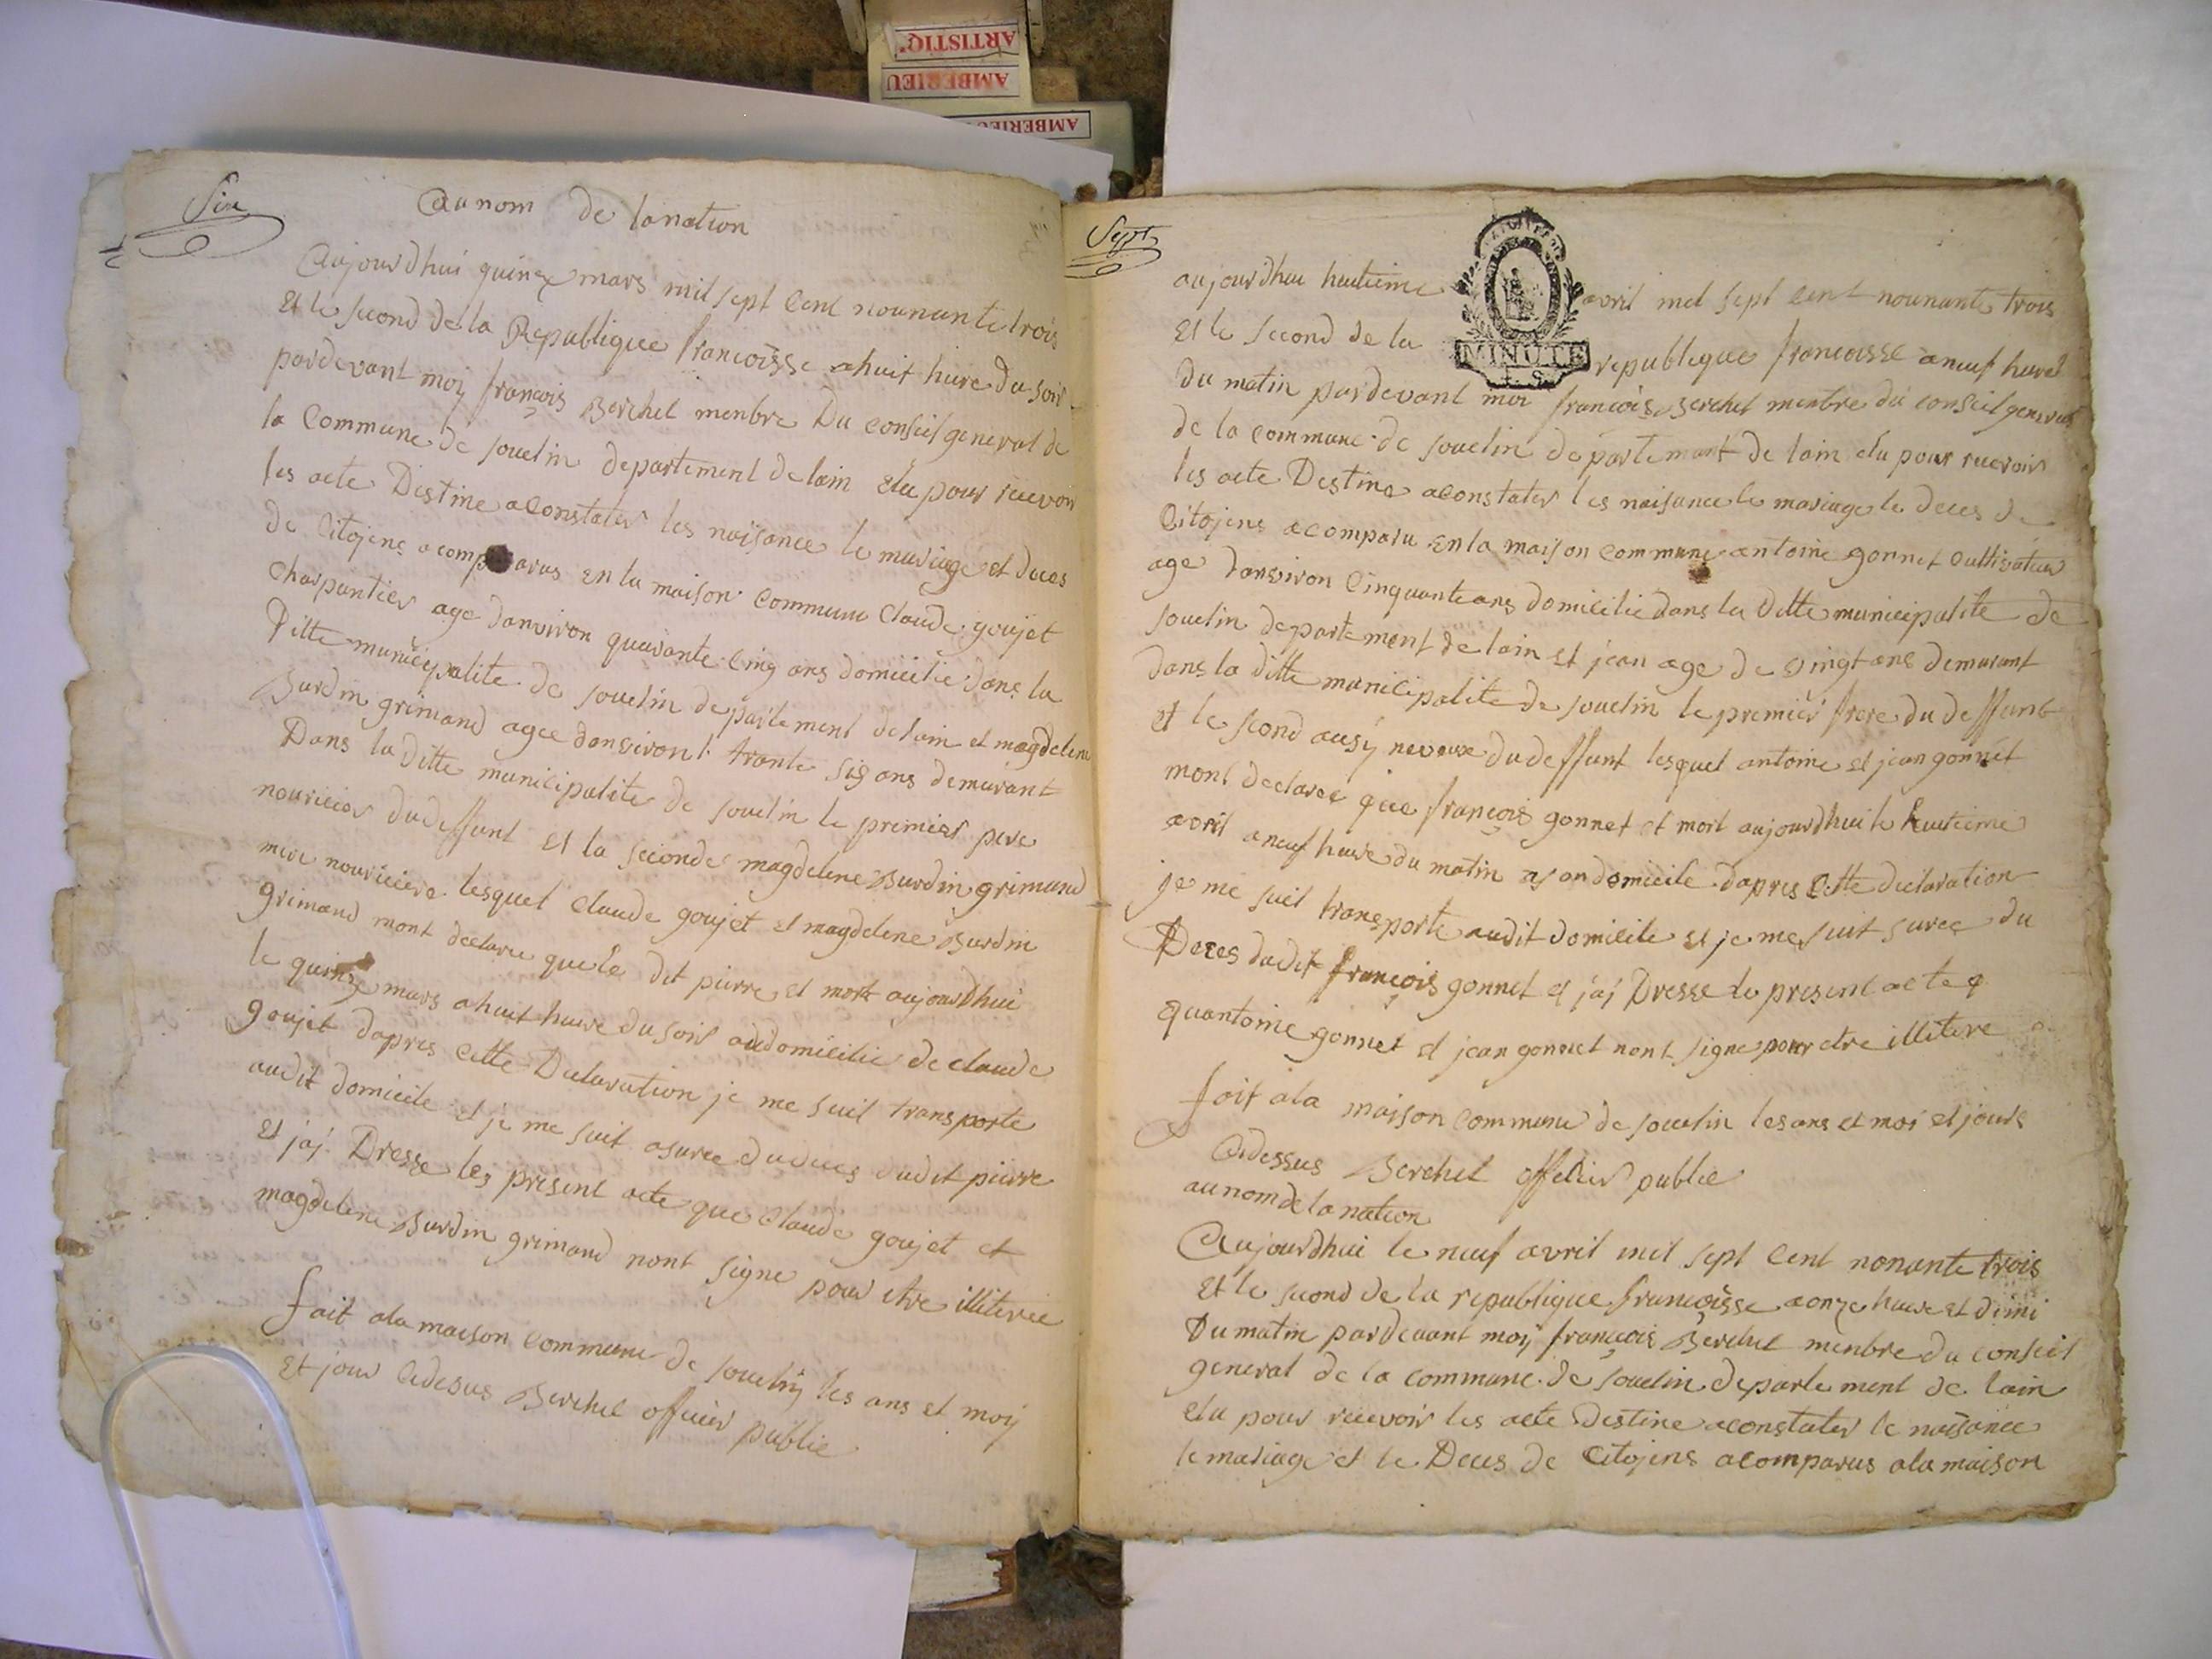 ARTISTIQ'
AMBERIEU
AMBERIEU
Six
Au nom de la nation
Aujourdhui quinze mars mil sept Cent nounante trois
Et le second de la Republique francoisse ahuit hure du soir
pardevant moij françois Berchet menbre Du conseil general de
la Commune de souclin departement de lain Elu pour recevoir
les acte Destine aConstater les naisance le mariage et deces
de Citojens acomparus En la maison Commune Claude goujet
Charpantier age danviron quarante cinq ans domicilie dans la
Ditte municipalite de souclin departement de lain et magdelene
Burdin grimand agee danviront trante sis ans demurant
Dans la ditte municipalite de souclin le premier pere
nouricier du deffunt Et la seconde magdelene Burdin grimand
mere nouriciere lesquel Claude goujet et magdelene Burdin
grimand mont declaree que le dit pierre et mort aujourdhui
le quinze mars ahuit hure du soir audomicilie de claude
goujet dapres Cette Declaration je me suit transporte
audit domicile et je me suit asuree dudeces dudit pierre
Et jaj Dresse les present acte que Claude goujet et
magdelene Burdin grimand nont signe pour etre illiteree
fait ala maison Commune de souclin les ans et moij
Et jour Cidesus Berchet officier publie
Sept
MINUTE
aujourdhui huitieme avril mil sept Cent nounante trois
Et le second de la republique francoisse aneuf hure
du matin pardevant moi françois Berchet menbre du conseil general
de la commune de souclin departemant de lain elu pour recevoir
les acte Destine aconstater les naisance le mariage le deces de
Citojens acomparu En la maison commune antoine gonnet Cultivateur
age danviron Cinquante ans domicilie dans la ditte municipalite de
souclin departement de lain et jean age de vingt ans demurant
dans la ditte municipalite de souclin le premier frere du deffunt
et le scond ausÿ neveux du deffunt lesquel antoine et jean gonnet
mont declaree que françois gonnet et mort aujourdhui le huitieme
avril aneuf hure du matin asondomicile dapres Cette declaration
je me suit transporte audit domicile et je me suit suree du
Deces dudit françois gonnet et jaj Dresse le present acte q
quantoine gonnet et jean gonnet nont signe pour etre illitere
fait ala maison Commune de souclin les ans et moi et jours
Cidessus Berchet officier publie
au nom de la nation
Aujourdhui le neuf avril mil sept Cent nonante trois
Et le second de la republique francoisse a onze hure et dimi
Du matin pardevant moij francois Berchet menbre du conseil
general de la commune de souclin departement de lain
elu pour recevoir les acte destine aconstater le naisance
le mariage et le Deces de Citojens acomparus ala maison